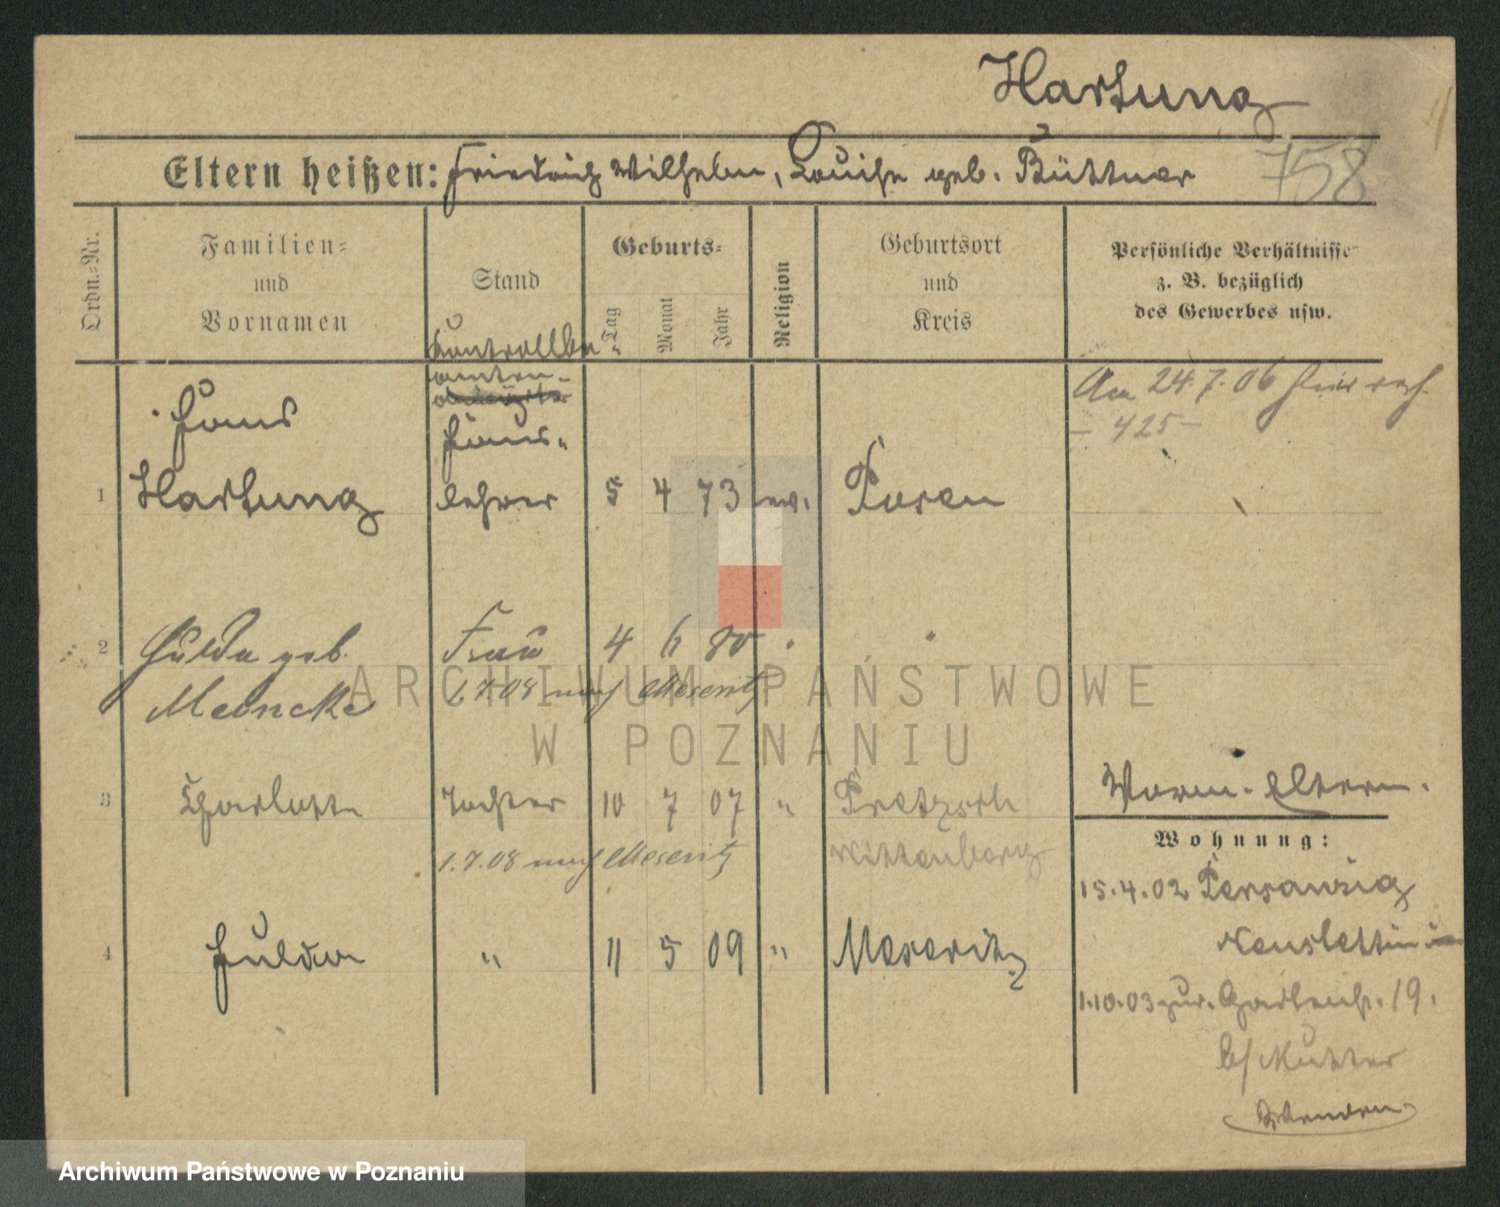 Hartung
758
Eltern heißen: Friedrich Wilhelm, Louise geb. Büttner
Ordn.=Nr.
Familien=
und
Vornamen
Stand
Geburts=
Tag
Monat
Jahr
Religion
Geburtsort
und
Kreis
Persönliche Verhältnisse
z. B. bezüglich
des Gewerbes usw.
Am 24.7.06
- 425 -
Hans
Haus-
1 Hartung lehrer 5 4 73 ev. Posen
2 Hulda geb. Frau 4 6 80 " "
Meincke 1.7.08 nach Meseritz
3 Charlotte Tochter 10 7 07 " Pretzsch
1.7.08 nach Meseritz Wittenberg
4 Hulda " 11 5 09 " Meseritz
Verm. Eltern.
Wohnung:
15.4.02 Persanzig
Neustettin
1.10.03 zur. Gartenstr. 19.
b/ Mutter
Wenden
ARCHIWUM PAŃSTWOWE
W POZNANIU
Archiwum Państwowe w Poznaniu